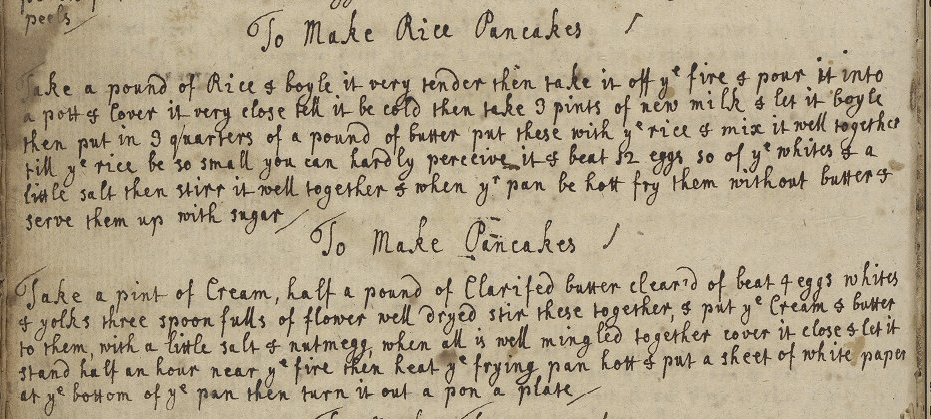 peels
To Make Rice Pancakes
Take a pound of Rice & boyle it very tender then take it off yᵉ fire & pour it into
a pott & Cover it very close till it be cold then take 3 pints of new milk & let it boyle
then put in 3 quarters of a pound of butter put these with yᵉ rice & mix it well together
till yᵉ rice be so small you can hardly perceive it & beat 12 eggs 10 of yᵉ whites & a
little salt then stirr it well together & when yʳ pan be hott fry them without butter &
serve them up with sugar
To Make Pancakes
Take a pint of Cream, half a pound of Clarifed butter clear'd of beat 4 eggs whites
& yolks three spoonfulls of flower well dryed stir these together, & put yᵉ Cream & butter
to them, with a little salt & nutmegg, when all is well mingled together cover it close & let it
stand half an hour near yᵉ fire then heat yᵉ frying pan hott & put a sheet of white paper
at yᵉ bottom of yᵉ pan then turn it out a pon a plate